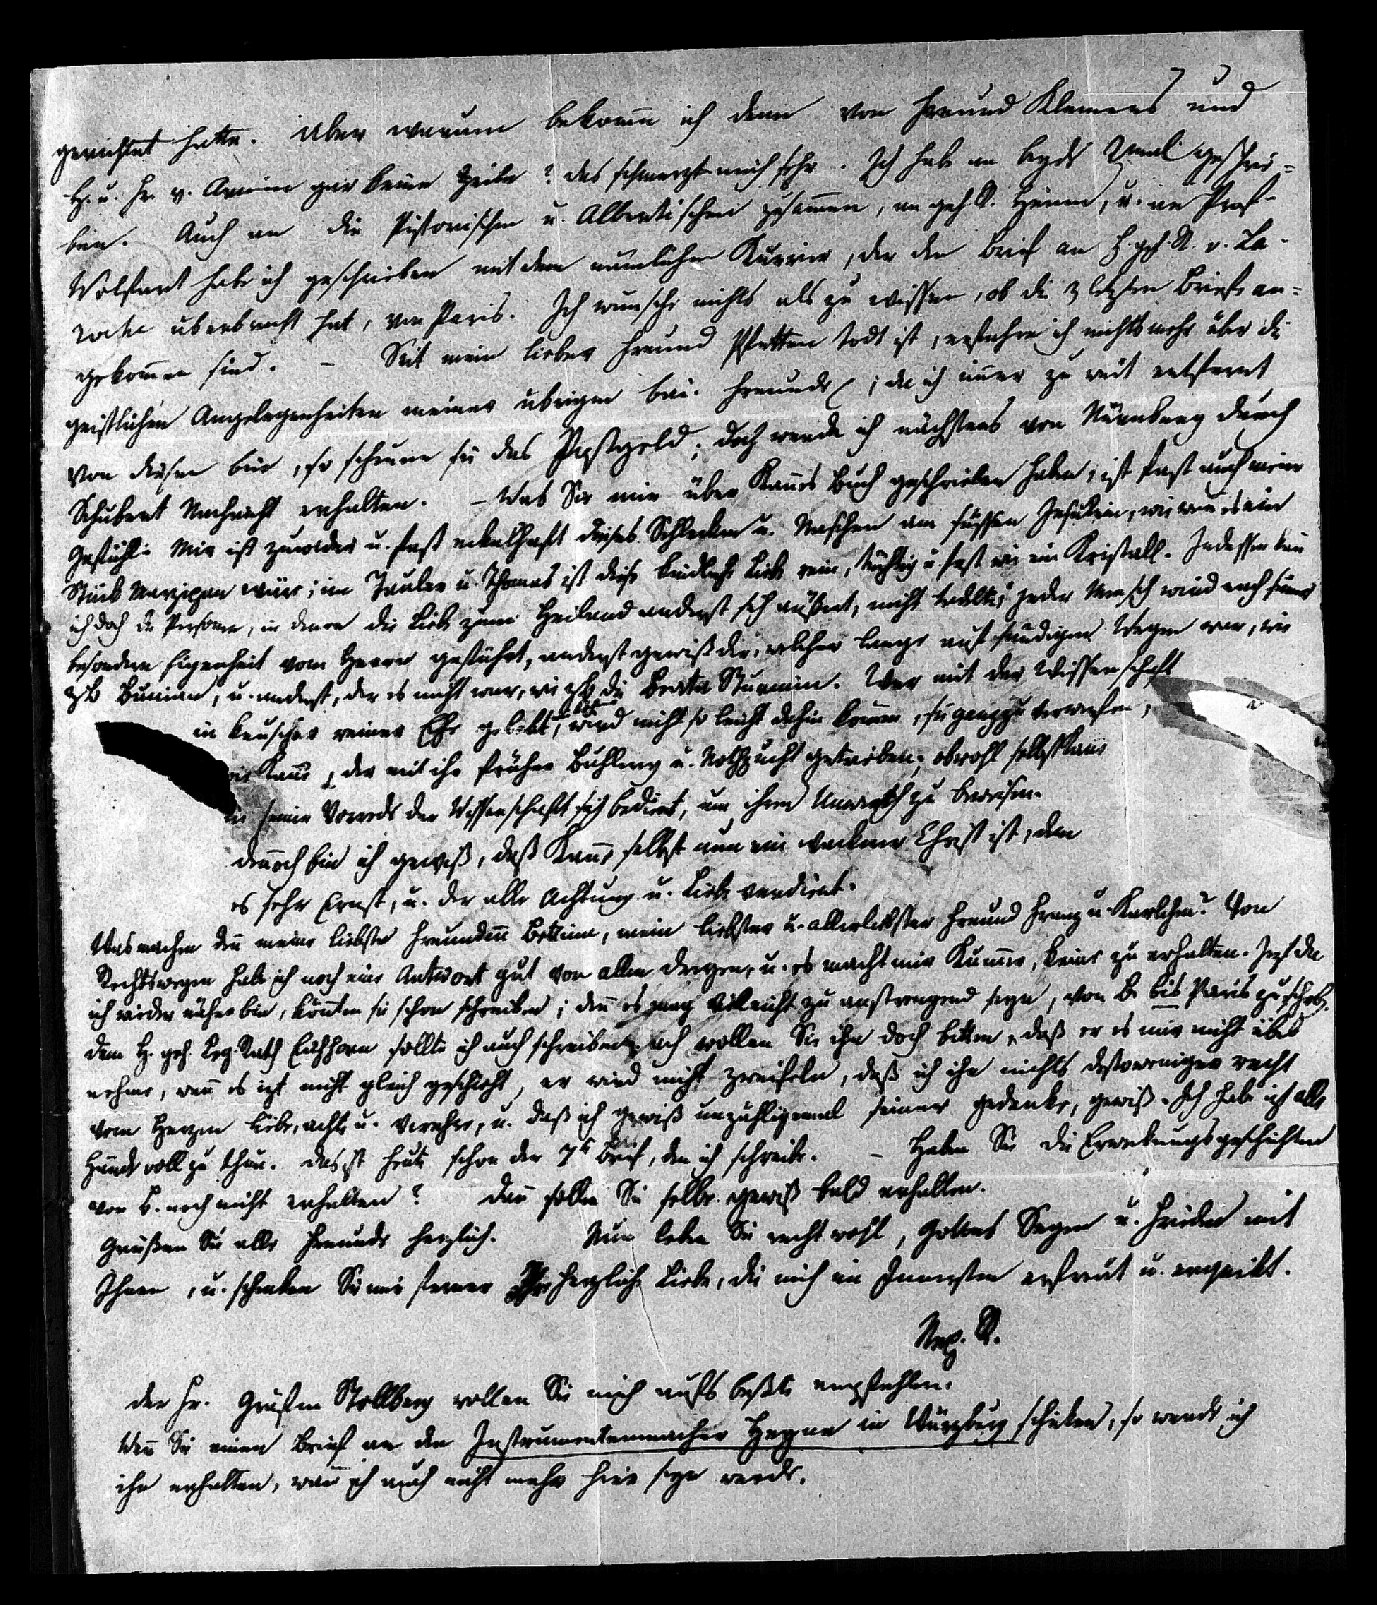 gerichtet hatte. Aber warum bekome ich denn von Freund Klemens und
H. u. Fr. v. Arnim gar keine Zeile? das schmerzt mich sehr. Ich habe an beyde 2mal geschrie=
ben. Auch an die Pistorischen u. Albertischen zusamen, an geh. R. Heim, u. an Prof.
Wolfart habe ich geschrieben mit dem nämlichen Kurrier, der den Brief an H. geh. R. v. La-
roche überbracht hat, von Paris. Ich wünsche nichts als zu wissen, ob die 3 letzten Briefe an=
gekomen sind. – Seit mein lieber Freund Pfetten todt ist, erfahre ich nichts mehr über die
geistlichen Angelegenheiten meiner übrigen bai. Freunde; da ich imer zu weit entfernt
von diesen bin, so scheuen sie das Postgeld; doch werde ich nächstens von Nürnberg durch
Schubert Nachricht erhalten. – Was Sie mir über Kanes Buch geschrieben haben, ist fast auch meine
Gefühl. Mir ist zuwider u. fast eckelhaft dieses Schlecken u. Naschen am süssen Jesulein, wie wen es ein
Stück Marzipan wäre; im Tauler u. Thomas ist diese kindliche Liebe rein, tüchtig u. fest wie ein Kristall. Indessen kan
ich doch die Personen, in denen die Liebe zum Heiland anderst sich äußert, nicht tadeln; jeder Mensch wird nach seiner
besondern Eigenheit vom Herrn geführt, anderst gewiß der, welcher lange auf sündigen Wegen war, wie
zb Bunian, u. anderst, der es nicht war, wie zb die Beata Sturmin. Wer mit der Wissenschaft
in keuscher reiner Ehe gelebt hat, wird nicht so leicht dahin komen, sie ganz zu verwerfen,
wie Kane, der mit ihr früher Buhlerey u. Nothzucht getrieben; obwohl selbst Kane
in seiner Vorrede der Wissenschaft sich bedient, um ihren Unwerth zu beweisen.
denoch bin ich gewiß, daß Kane selbst nun ein wackerer Christ ist, dem
es sehr Ernst, u. der alle Achtung u. Liebe verdient.
Was machen den meine liebste Freundin Bettine, mein liebster u. allerliebster Freund Franz u. Karlchen? Von
Rechtswegen habe ich noch eine Antwort gut von allen dreyen, u. es macht mir Kumer, keine zu erhalten. Jezt da
ich wieder näher bin, könnten sie schon schreiben; den es mag vielleicht zu anstrengend seyn, von B. bis Paris zu schrb.
dem H. geh. Leg. Rath Eichhorn sollte ich auch schreiben; ach wollen Sie ihn doch bitten, daß er es mir nicht übel
nehme, wen es izt nicht gleich geschieht, er wird nicht zweifeln, daß ich ihn nichts destoweniger recht
vom Herzen liebe, achte u. verehre, u. daß ich gewiß unzähligemal seiner gedenke, gewiß. Ich habe izt alle
Hände voll zu thun. das ist heute schon der 7te Brief, den ich schreibe. – Haben Sie die Erweckungsgeschichten
von B. noch nicht erhalten? dan sollen Sie selbe gewiß bald erhalten.
Grüßen Sie alle Freunde herzlich. Nun leben Sie recht wohl, Gottes Segen u. Frieden mit
Ihnen, u. schenken Sie mir ferner Ihre herzliche Liebe, die mich im Innersten erfreut u. erquikt.
Nep. R.
der Fr. Gräfin Stollberg wollen Sie mich aufs beßte empfehlen.
Wen Sie einen Brief an den Instrumentenmacher Heyne in Würzburg schicken, so werde ich
ihn erhalten, wan ich auch nicht mehr hier seyn werde.